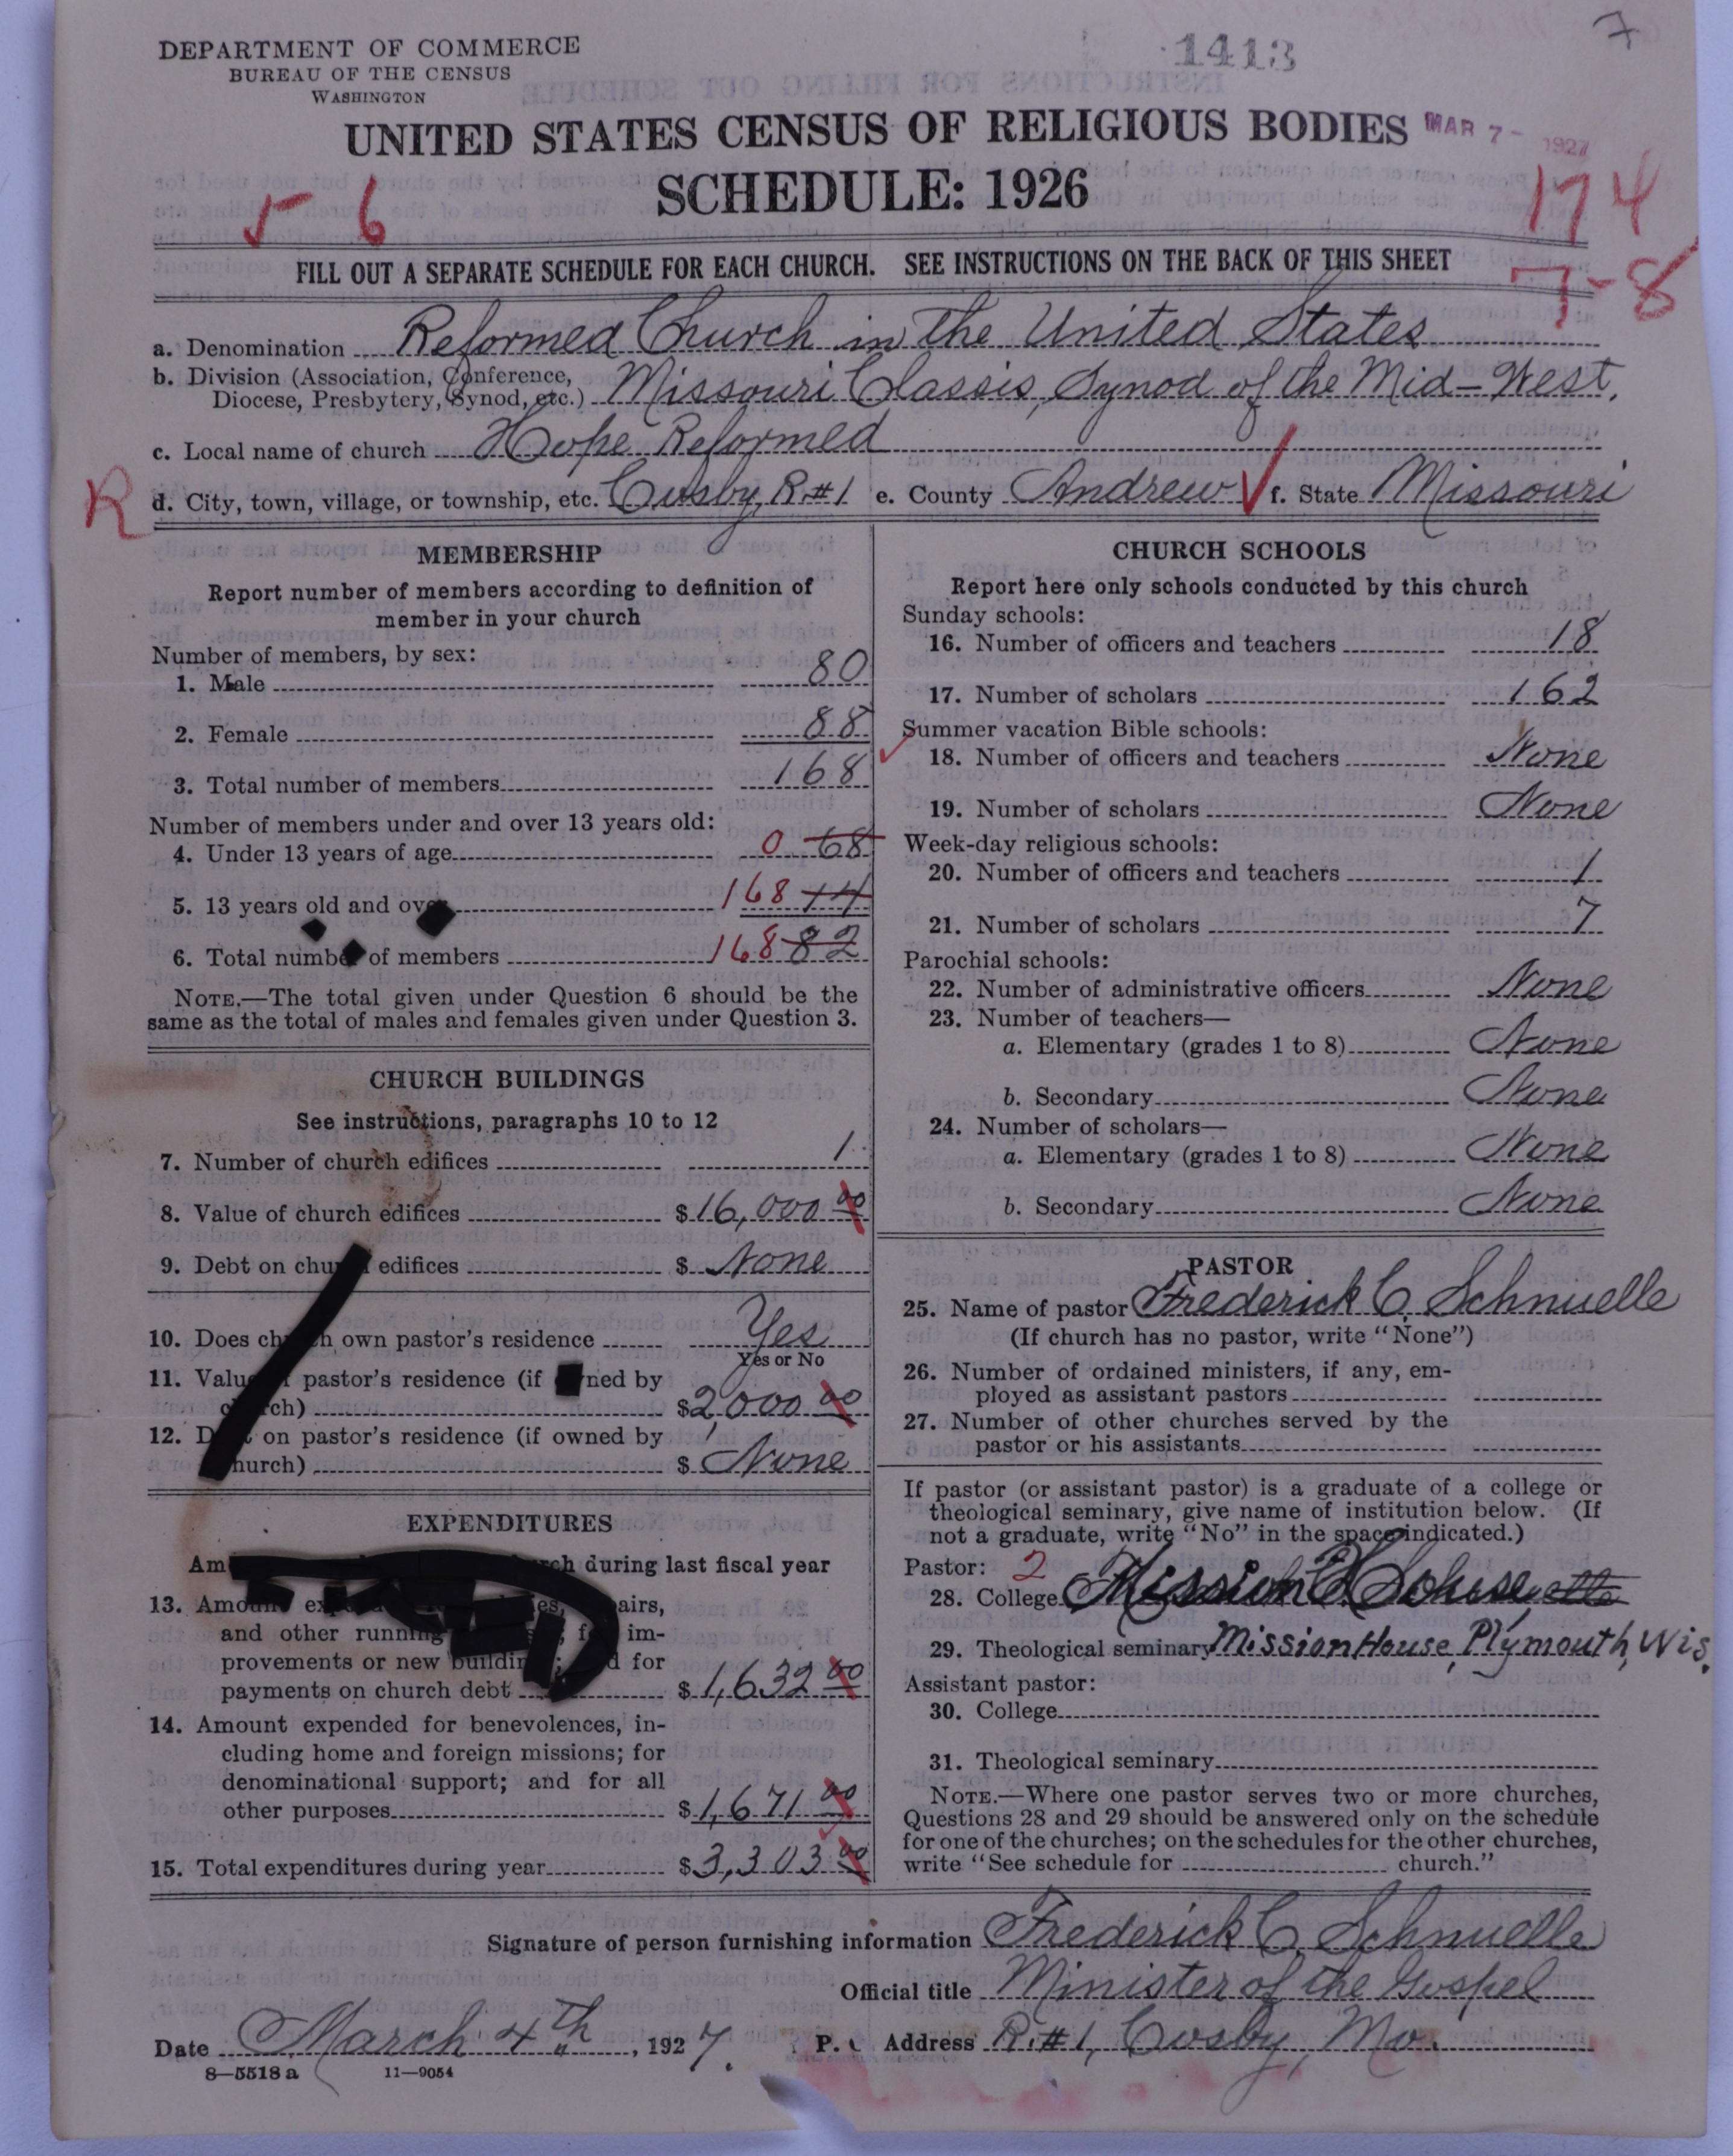 DEPARTMENT OF COMMERCE
BUREAU OF THE CENSUS
WASHINGTON
1413
7
UNITED STATES CENSUS OF RELIGIOUS BODIES
MAR 7 - 1927
SCHEDULE: 1926
6
174
7-8
FILL OUT A SEPARATE SCHEDULE FOR EACH CHURCH. SEE INSTRUCTIONS ON THE BACK OF THIS SHEET
a. Denomination Reformed Church in the United States
b. Division (Association, Conference, Diocese, Presbytery, Synod, etc.) Missouri Classis, Synod of the Mid-West.
c. Local name of church Hope Reformed
R d. City, town, village, or township, etc. Cosby, R#1 e. County Andrew f. State Missouri
MEMBERSHIP
Report number of members according to definition of
member in your church
Number of members, by sex:
1. Male 80
2. Female 88
3. Total number of members 168
Number of members under and over 13 years old:
4. Under 13 years of age 0 68
5. 13 years old and over 168 14
6. Total number of members 168 82
NOTE.—The total given under Question 6 should be the
same as the total of males and females given under Question 3.
CHURCH BUILDINGS
See instructions, paragraphs 10 to 12
7. Number of church edifices 1
8. Value of church edifices $16,000 00
9. Debt on church edifices $ None
10. Does church own pastor's residence Yes
Yes or No
11. Value pastor's residence (if owned by
church) $2,000 00
12. Debt on pastor's residence (if owned by
church) $ None
EXPENDITURES
during last fiscal year
13. Amount
and other running im-
provements or new building; for
payments on church debt $1,632 00
14. Amount expended for benevolences, in-
cluding home and foreign missions; for
denominational support; and for all
other purposes $1,671 00
15. Total expenditures during year $3,303 00
CHURCH SCHOOLS
Report here only schools conducted by this church
Sunday schools:
16. Number of officers and teachers 18
17. Number of scholars 162
Summer vacation Bible schools:
18. Number of officers and teachers None
19. Number of scholars None
Week-day religious schools:
20. Number of officers and teachers 1
21. Number of scholars 7
Parochial schools:
22. Number of administrative officers None
23. Number of teachers—
a. Elementary (grades 1 to 8) None
b. Secondary None
24. Number of scholars—
a. Elementary (grades 1 to 8) None
b. Secondary None
PASTOR
25. Name of pastor Frederick C. Schnuelle
(If church has no pastor, write "None")
26. Number of ordained ministers, if any, em-
ployed as assistant pastors
27. Number of other churches served by the
pastor or his assistants
If pastor (or assistant pastor) is a graduate of a college or
theological seminary, give name of institution below. (If
not a graduate, write "No" in the space indicated.)
Pastor: 2
28. College Mission House
29. Theological seminary Mission House, Plymouth, Wis.
Assistant pastor:
30. College
31. Theological seminary
NOTE.—Where one pastor serves two or more churches,
Questions 28 and 29 should be answered only on the schedule
for one of the churches; on the schedules for the other churches,
write "See schedule for church."
Signature of person furnishing information Frederick C. Schnuelle
Official title Minister of the Gospel
Date March 4th, 1927. P. Address R.#1, Cosby, Mo.
8—5518 a 11—9054